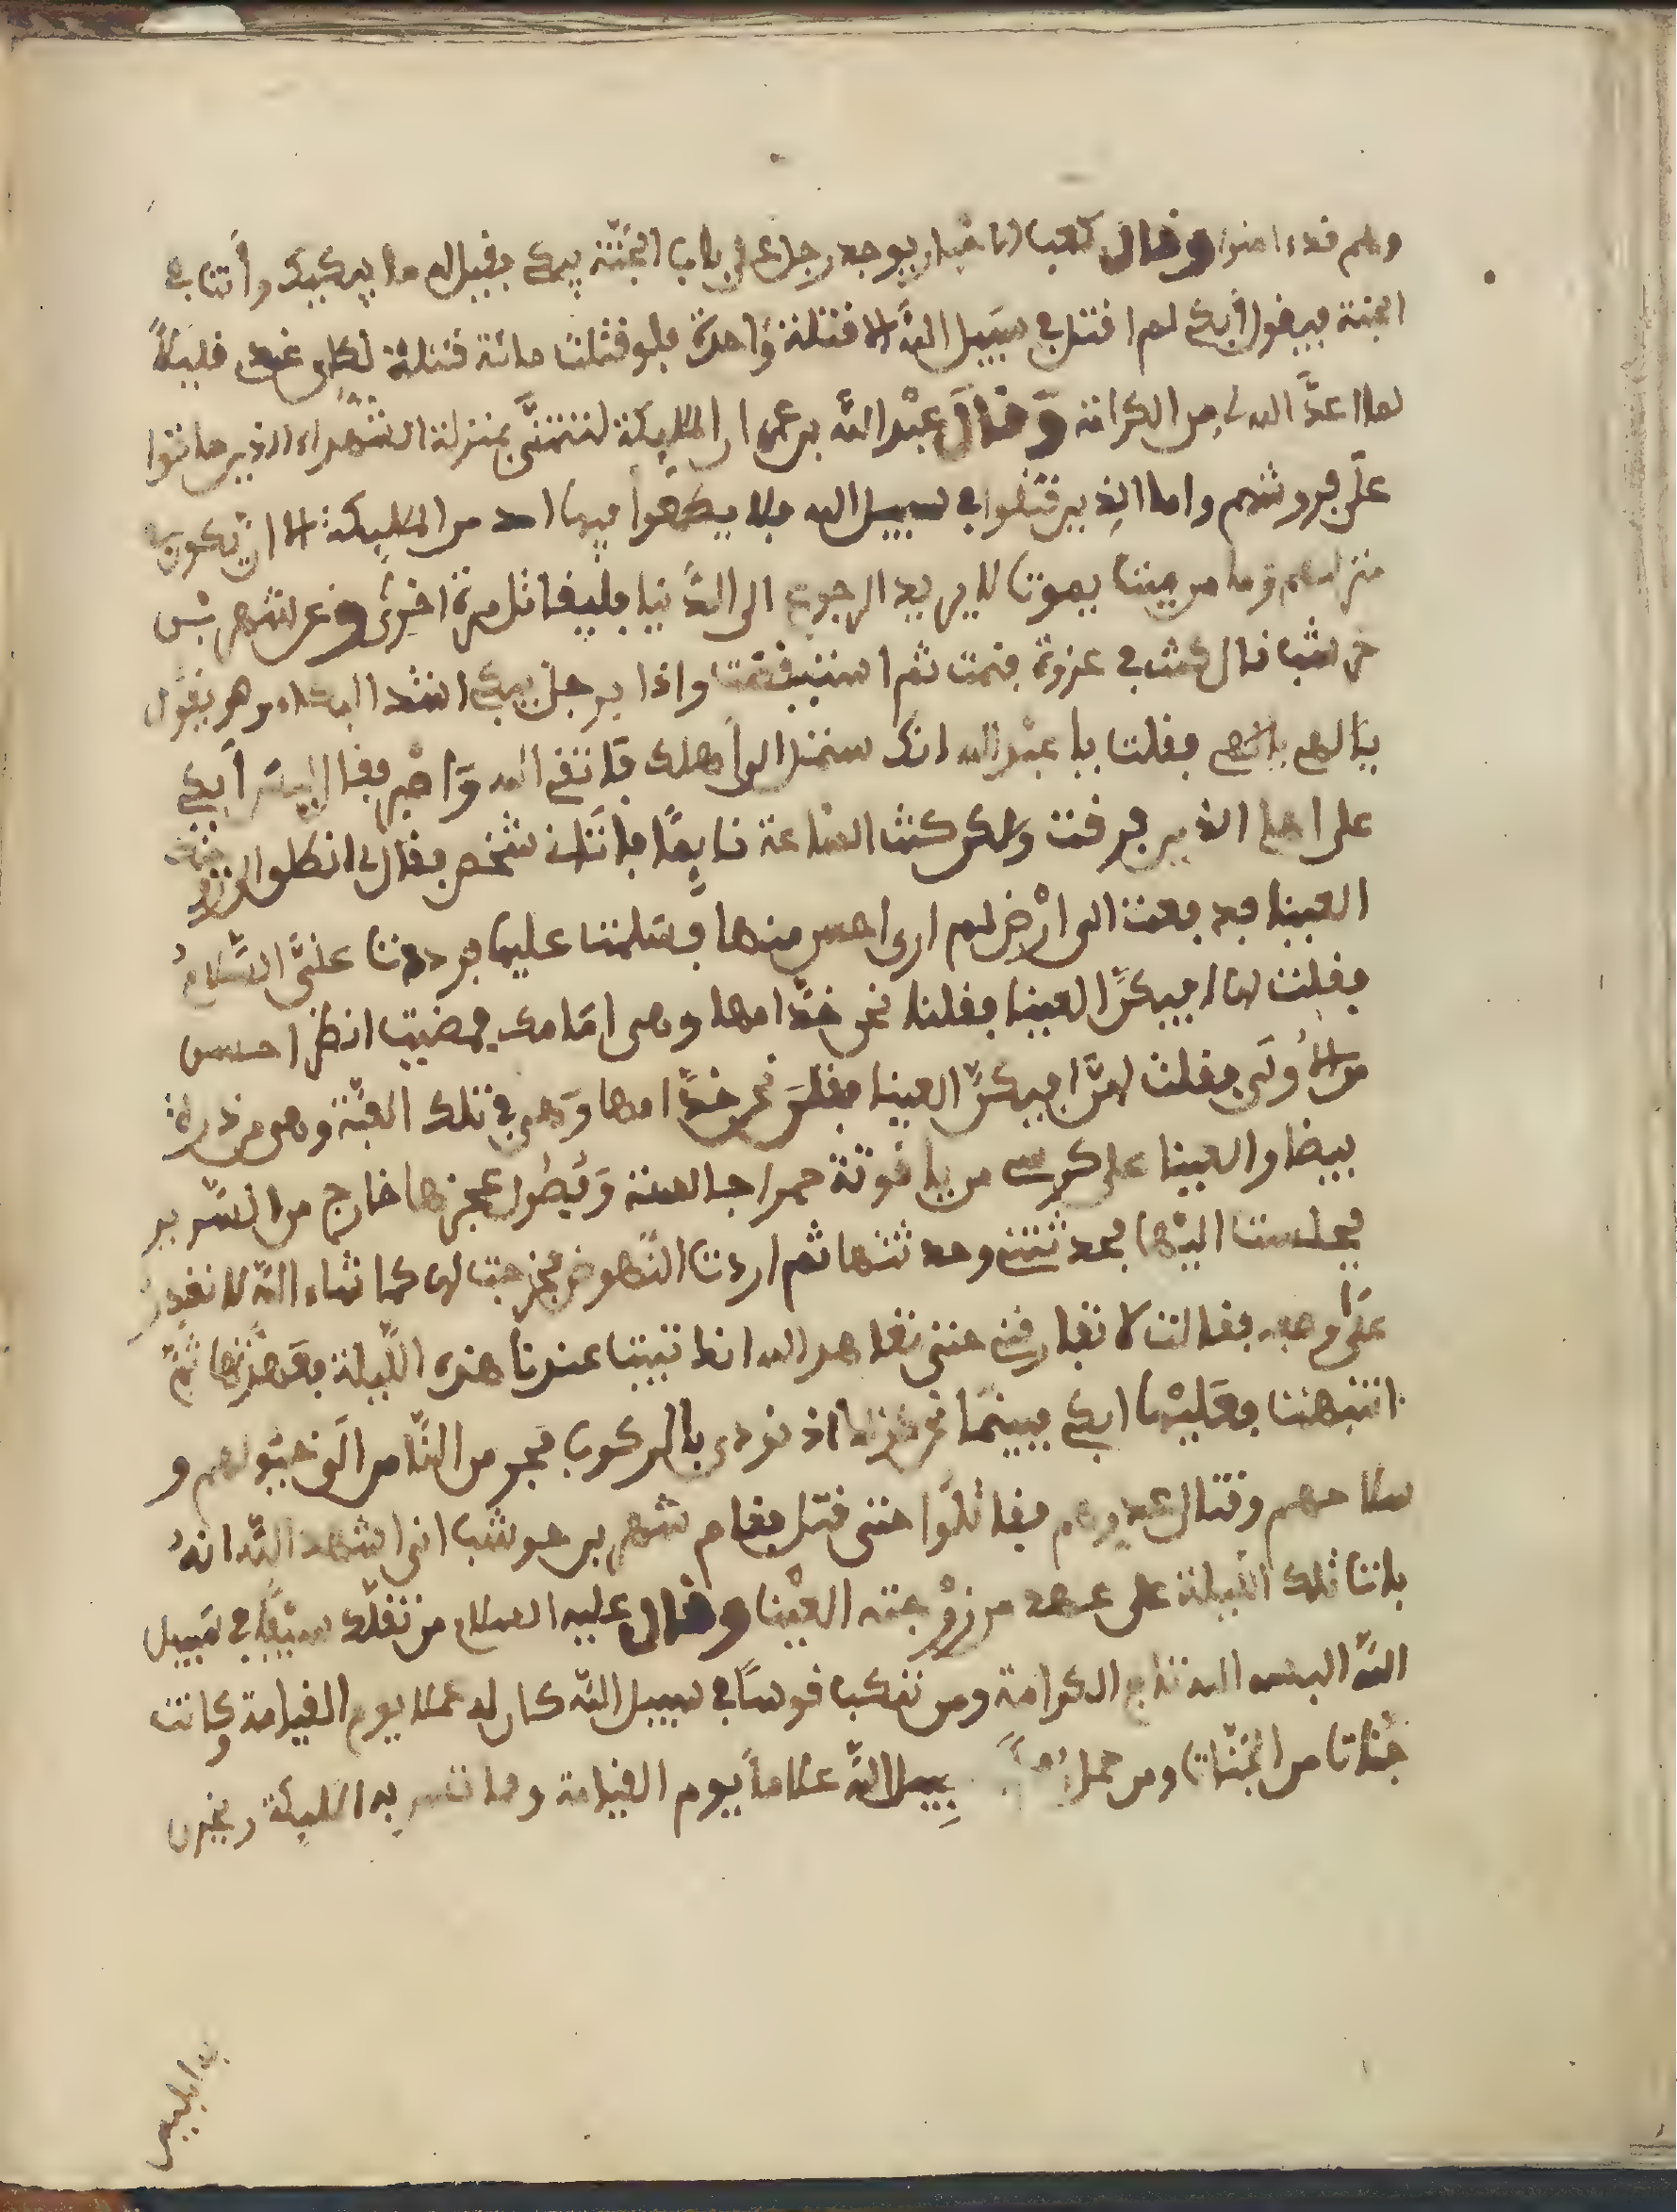 وهم قد امنوا وقال كعب الاخبار يوجد رجل على باب الجنّة يبكي فقيل له ما يبكيك وأنت في
الجنة فيقول أبكي لم اقتل في سبيل اللّه الا قتلة واحدة فلو قتلت مائة قتلة لكان عندي قليلاً
لما اعدَّ الله لي من الكرامة وقال عبْد اللّه بن عمر ان المليكة لتتمنّى بمنزلة الشّهداء الذين ماتوا
على فروشهم واما الذين قتلوا في سبيل الله فلا يطمعوا فيها احد من المليكة الا ان تكون
منزلتهم وما من ميت يموت الا يريد الرجوع الى الدّنيا فليقاتل مرة اخرى وعن شهر بن
حوشب قال كنت في غزوة فنمت ثم استيقظت واذا برجل يبكي اشد البكاء وهو يقول
فقلت يا عبْد الله انك ستنزل الى أهلك فاتقي الله وَاصْبر فقال ليس أبكي
على اهلي الذين فرقت ولكن كنت السّاعة نايماً فاتاني شخص فقال لي انطلق الى زوجتك
العينا فدفعت الى ارْض لم ارى احسن منها فسلمت عليها فرددن عليَّ السّلامُ
فقلت لهن افيكنَّ العينا فقلنا نحن خدّامها وهي امَامك فمضيت انظر احسن
من الأُولَى فقلت لهنّ افيكنّ العينا فقلنَ نحن خدّامها وَهي في تلك القبّة وهي من درة
بيضا والعينا على كرسي من ياقوتة حمرا جالسة وَفضول عجزها خارج من السّرير
فجلست اليْها فحدثتني وحدثتها ثم اردت النّهوض فخرجت لي كما شاء اللّه لا نقدر
على وصفه فقالت لا تفارقني حتى تعاهد الله انك تبيت عندنا هذه اللّيلة فعَهدْتها ثمّ
انتبهت فعَليْها ابكي فبينمَا نحن كذلك اذ نودي بالركوب فجر من النّاس الى خيُولهم و
سلاحهم وقتال عدوهم فقاتلُوا حتى قتل فقام شهر بن حوشب اني اشهد اللّه انهُ
بات تلك اللّيلة على عهد من زوْجته العيْنا وقال عليه السلام من تقلّد سيْفاً في سَبيل
اللّه البسه الله تاج الكرامة ومن تنكب قوساً في سبيل اللّه كان له عملا يوم القيامة وكانت
جنات من الجنّات ومن حمل بيل اللّه علاماً يوم القيامة وما تسر به المليكة ويحزن
به ابليس